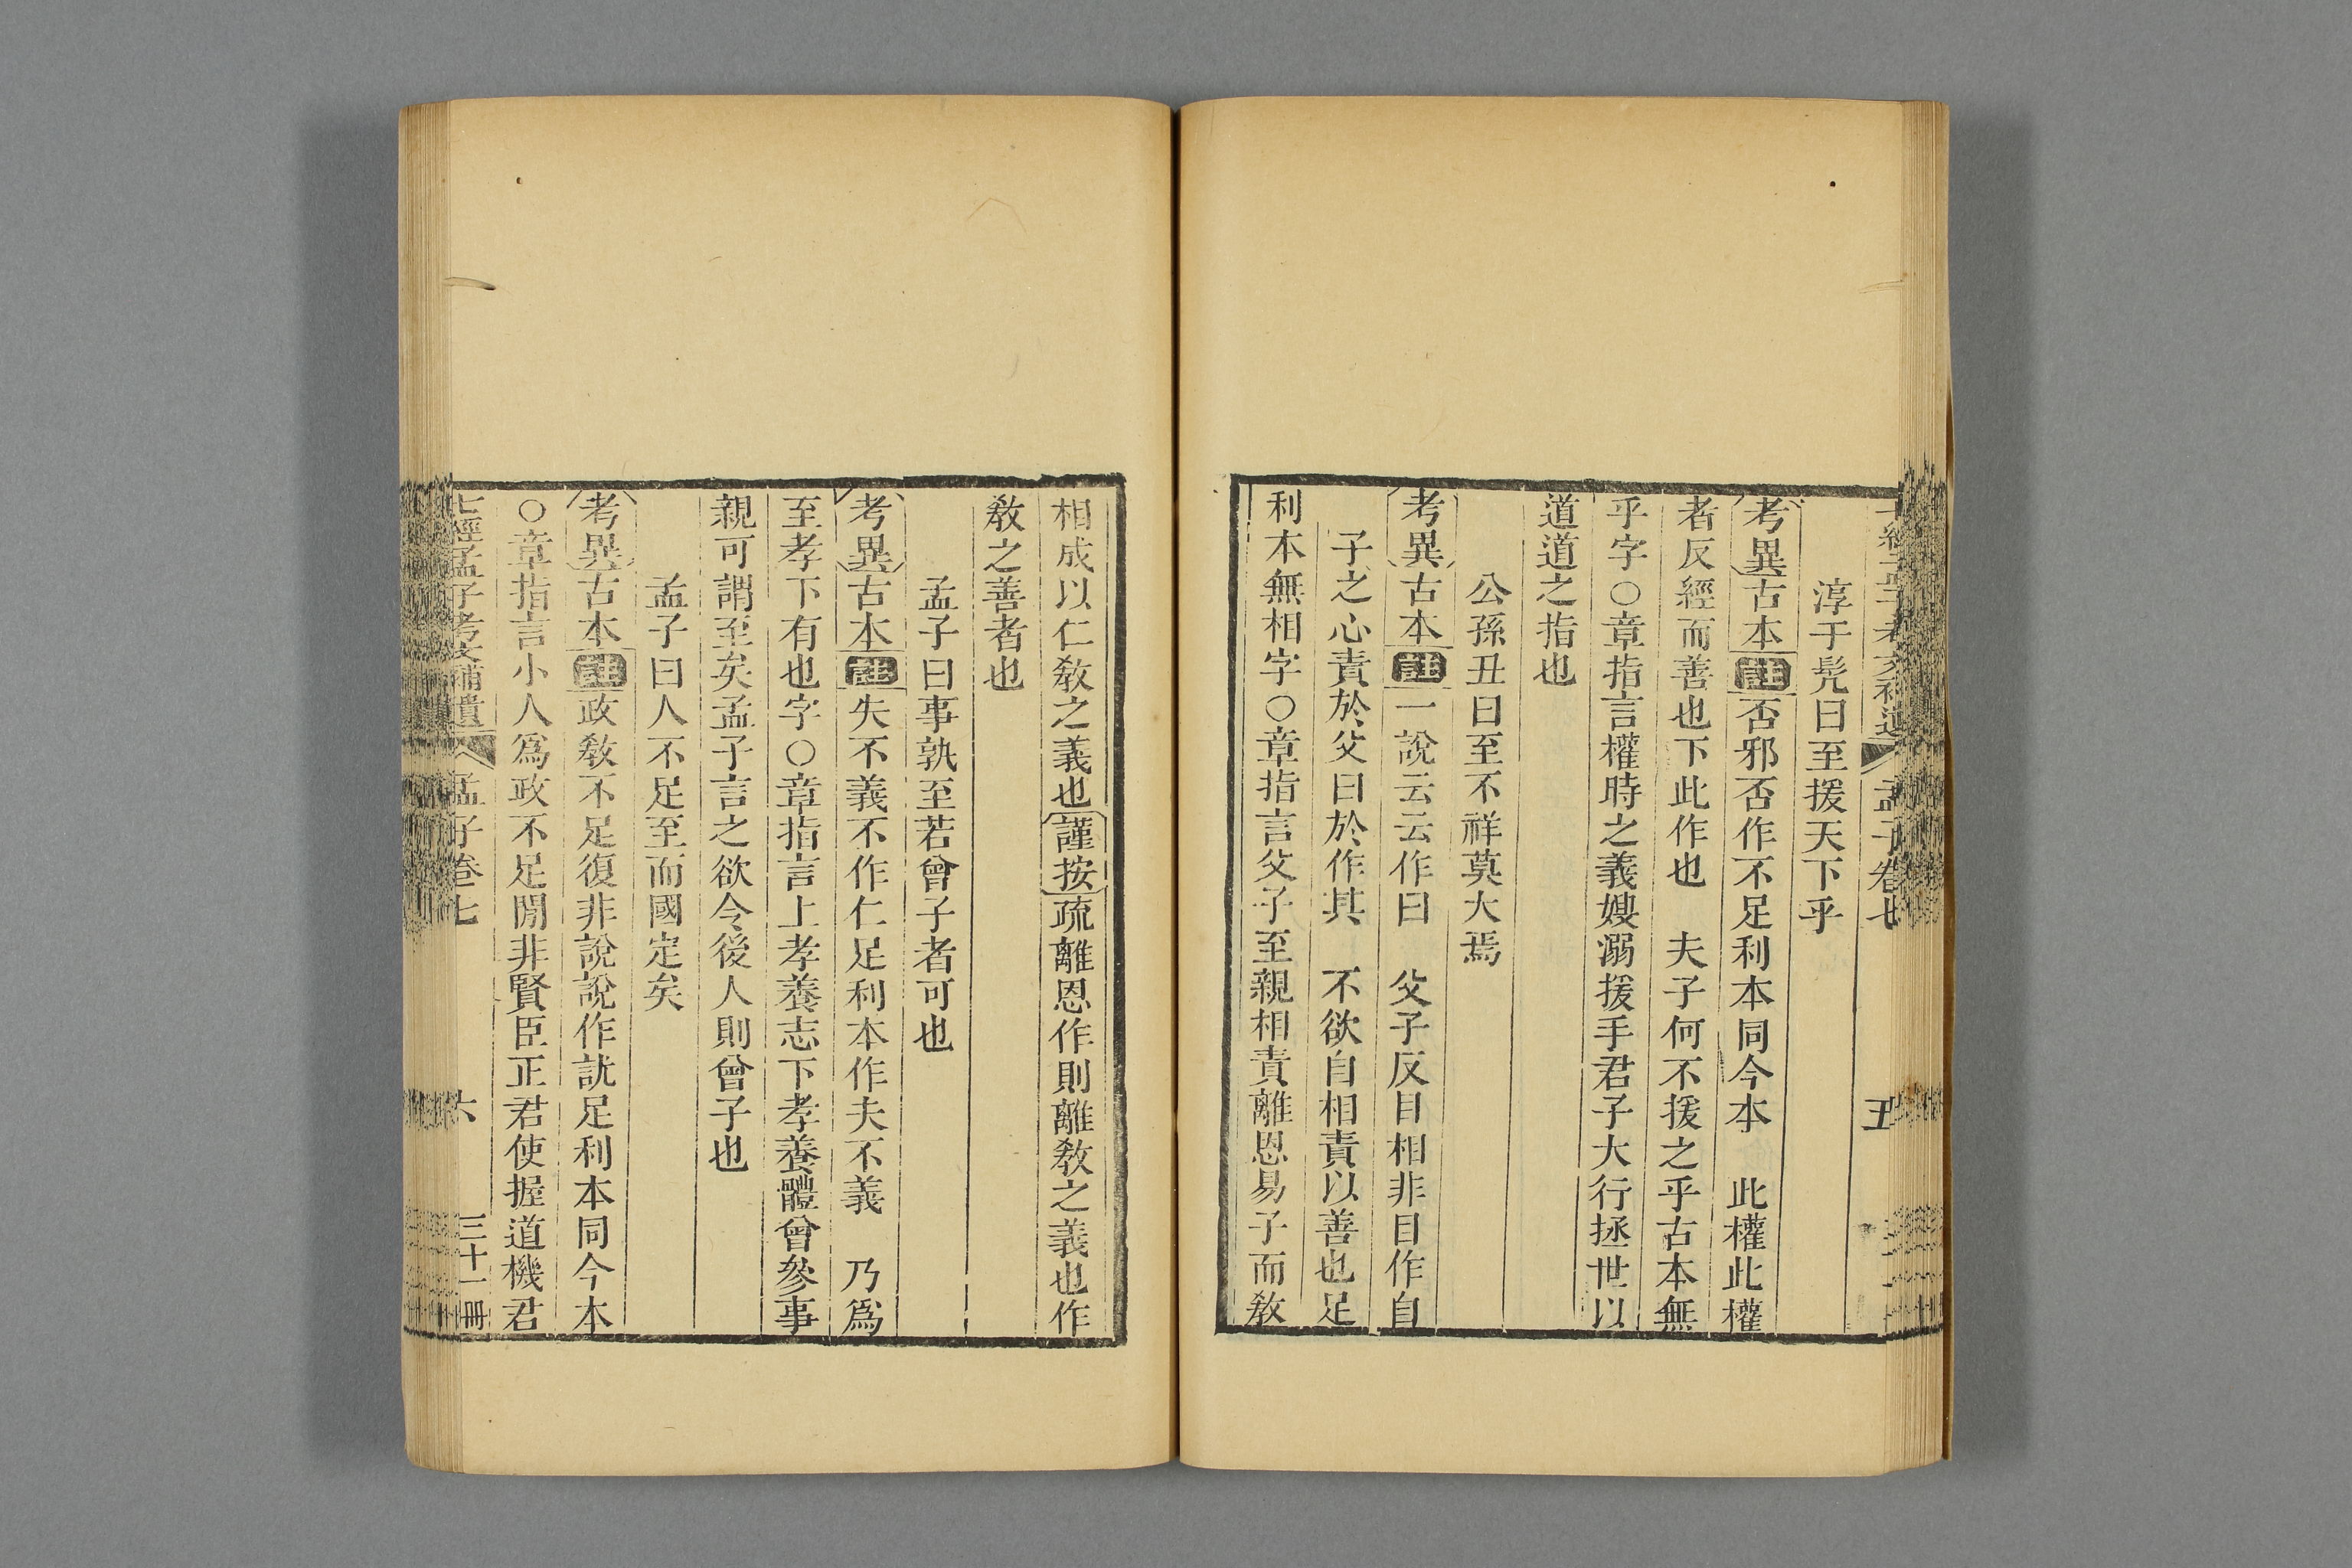 孟子卷七
五
淳于髠曰至援天下乎
考異古本註否邪否作不足利本同今本　此權此權
者反經而善也下此作也　夫子何不援之乎古本無
乎字○章指言權時之義嫂溺援手君子大行拯世以
道道之指也
公孫丑曰至不祥莫大焉
考異古本註一說云云作曰　父子反目相非目作自
子之心責於父曰於作其　不欲自相責以善也足
利本無相字○章指言父子至親相責離恩易子而敎
相成以仁敎之義也謹按疏離恩作則離敎之義也作
敎之善者也
孟子曰事孰至若曾子者可也
考異古本註失不義不作仁足利本作夫不義　乃爲
至孝下有也字○章指言上孝養志下孝養體曾參事
親可謂至矣孟子言之欲令後人則曾子也
孟子曰人不足至而國定矣
考異古本註政敎不足復非說說作訧足利本同今本
○章指言小人爲政不足閒非賢臣正君使握道機君
七經孟子考文補遺　孟子卷七
六
三十一冊